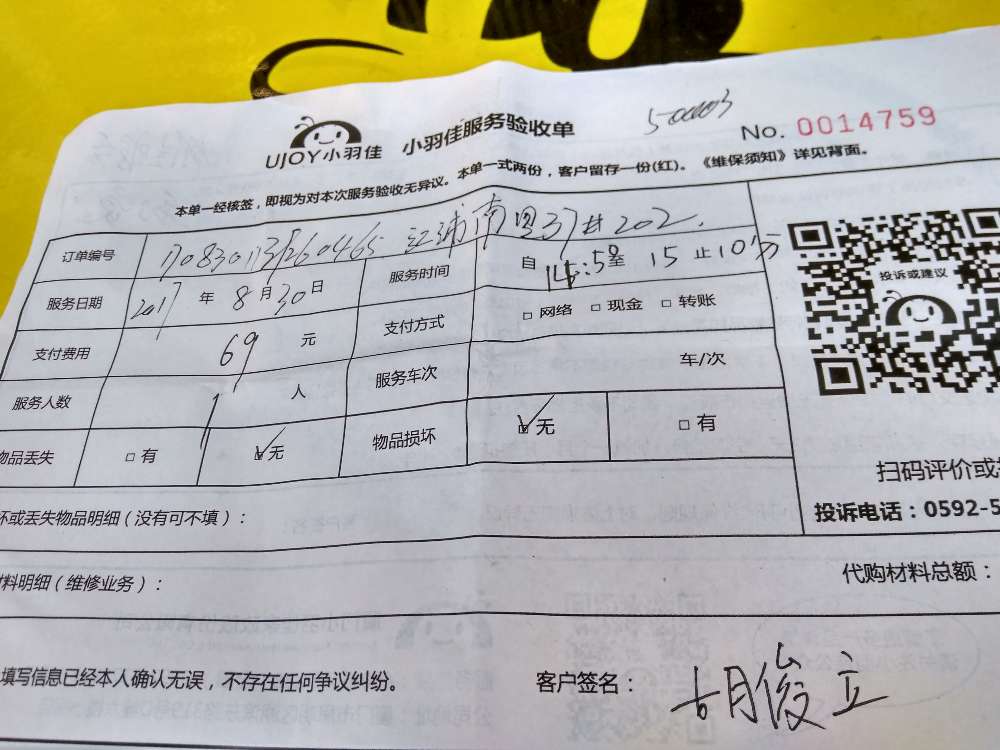 UJOY小羽佳 小羽佳服务验收单 No. 0014759
本单一经核签，即视为对本次服务验收无异议。本单一式两份，客户留存一份(红)。《维保须知》详见背面。
订单编号
服务日期 2017年8月30日 服务时间 自14:58至15止10分
支付费用 69元 支付方式 □网络 □现金 □转账
服务人数 1人 服务车次 车/次
物品丢失 □有 ☑无 物品损坏 ☑无 □有
投诉或建议
扫码评价或
投诉电话：0592-5
坏或丢失物品明细（没有可不填）：
材料明细（维修业务）：
代购材料总额：
填写信息已经本人确认无误，不存在任何争议纠纷。
客户签名：胡俊立